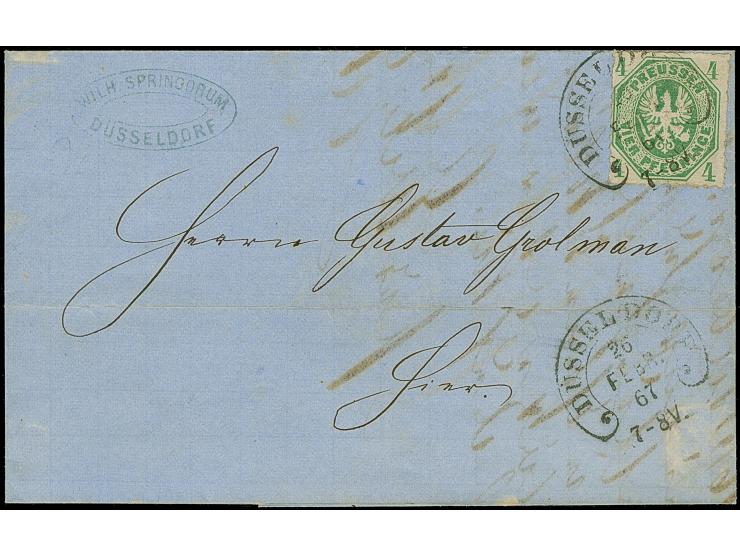 WILH. SPRINGORUM
DÜSSELDORF
DÜSSELDORF
7-8V.
4 PREUSSEN 4
4 VIER PFENNINGE 4
Herrn Gustav Grolman
Hier.
DÜSSELDORF
26
FEBR.
67
7-8V.